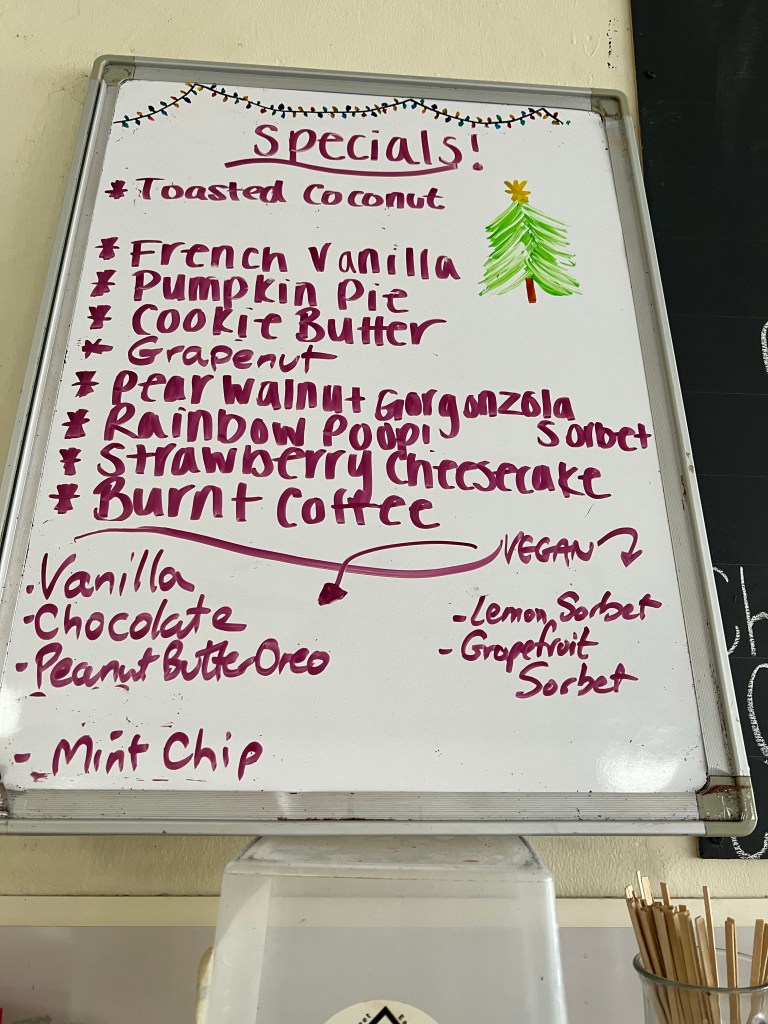 Specials!
* Toasted Coconut
* French Vanilla
* Pumpkin Pie
* Cookie Butter
* Grapenut
* Pear Walnut Gorgonzola
Sorbet
* Rainbow Poop!
* Strawberry Cheesecake
* Burnt Coffee
VEGAN
- Vanilla
- Chocolate
- Peanut Butter Oreo
- Mint Chip
- Lemon Sorbet
- Grapefruit
Sorbet